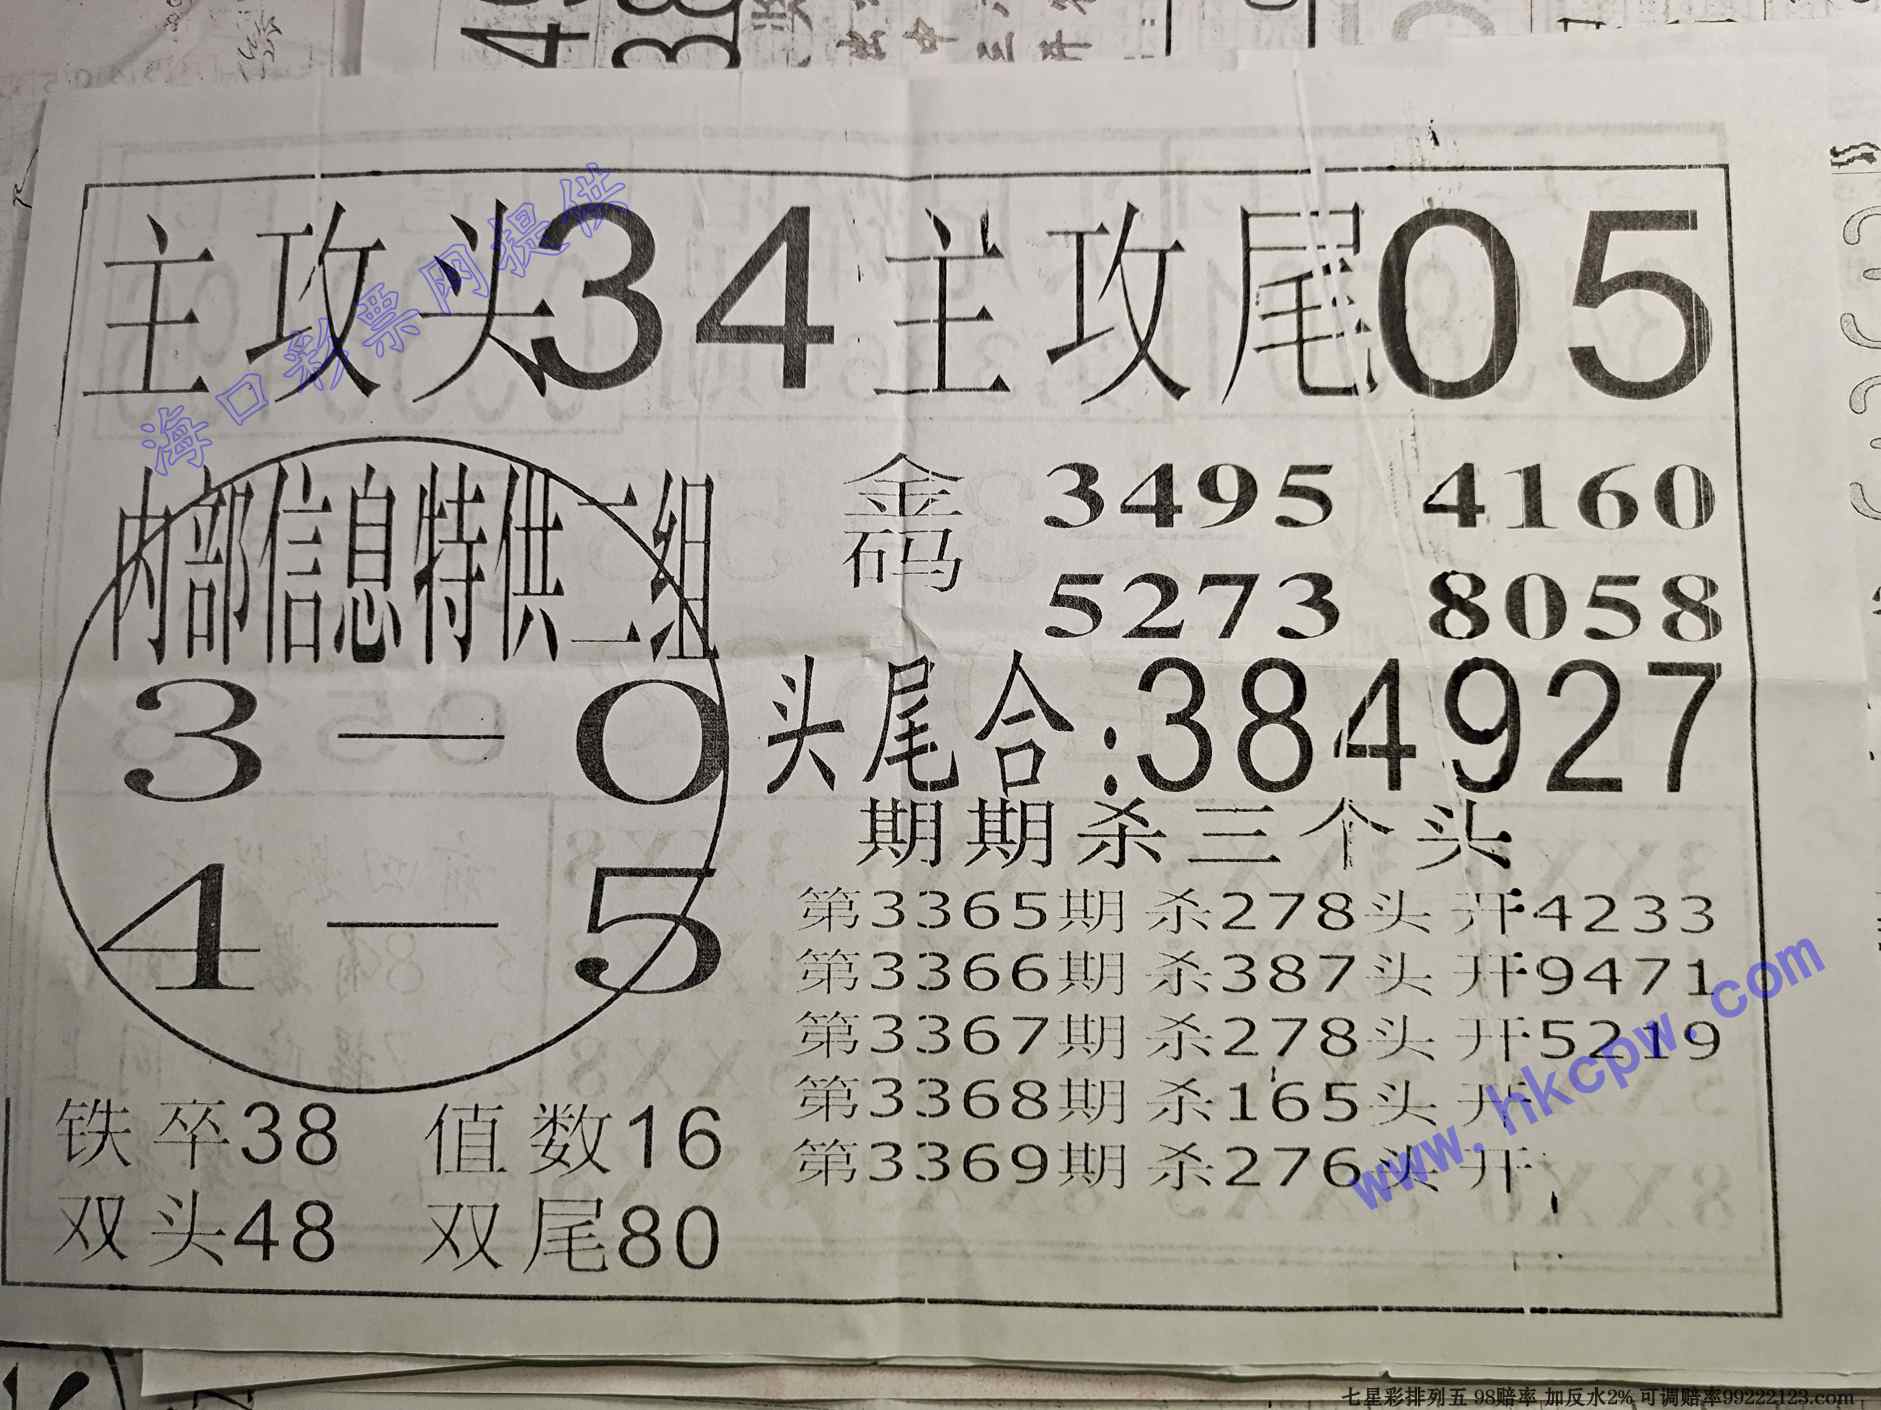 主攻头34 主攻尾05
海口彩票网提供
内部信息特供二组
3—0
4—5
金码 3495 4160
5273 8058
头尾合:384927
期期杀三个头
第3365期 杀278头 开:4233
第3366期 杀387头 开:9471
第3367期 杀278头 开:5219
第3368期 杀165头 开
第3369期 杀276头 开
铁卒38 值数16
双头48 双尾80
www.hkcpw.com
七星彩排列五 98赔率 加反水2% 可调赔率99222123.com